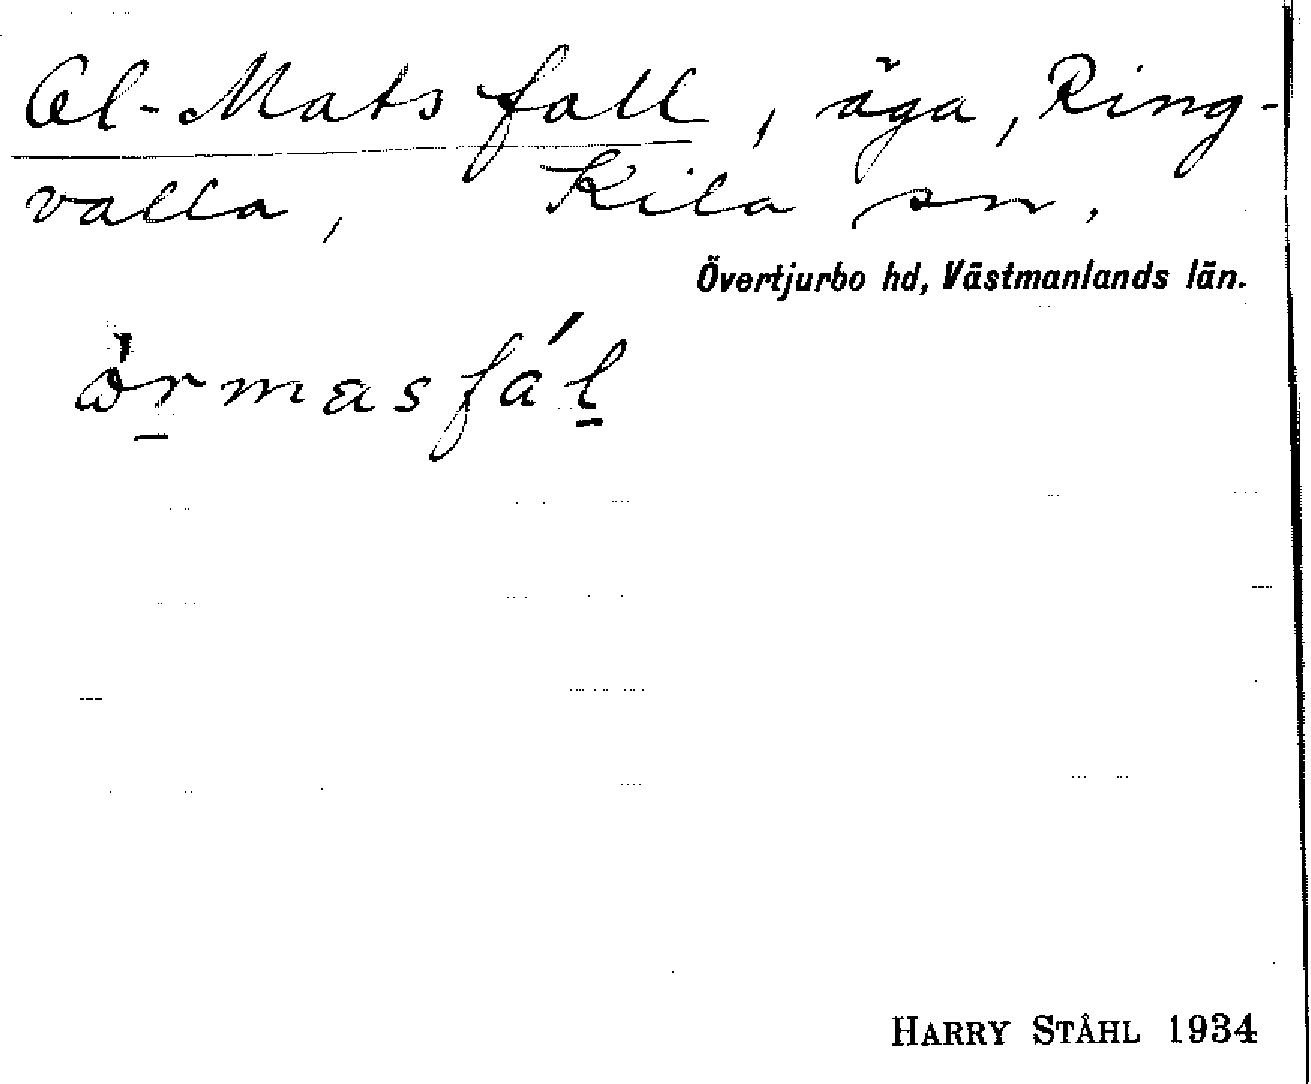 Ol-Mats fall, äga, Ring-
valla, Kila sn.
Övertjurbo hd, Västmanlands län.
HARRY STÅHL 1934